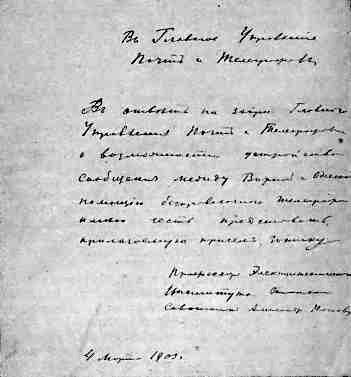 Въ Главное Управленiе
Почтъ и Телеграфовъ
Въ ответъ на запросъ Главнаго
Управленiя Почтъ и Телеграфовъ
о возможности устройства
сообщенiя между Варной и Одессой
помощью безпроволочнаго телеграфа
имею честь представить
прилагаемую при семъ записку
Профессоръ Электротехническаго
Института
Александръ Поповъ
4 Марта 1903.